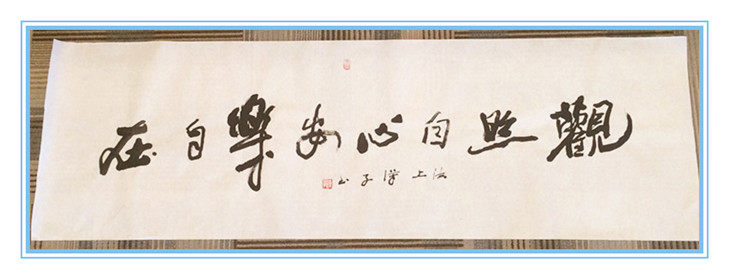 觀照自心安樂自在
海上 子书